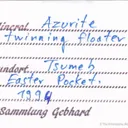 Mineral Azurite
twinning floater
Fundort Tsumeb
Easter Pocket.
1994
Sammlung Gebhard